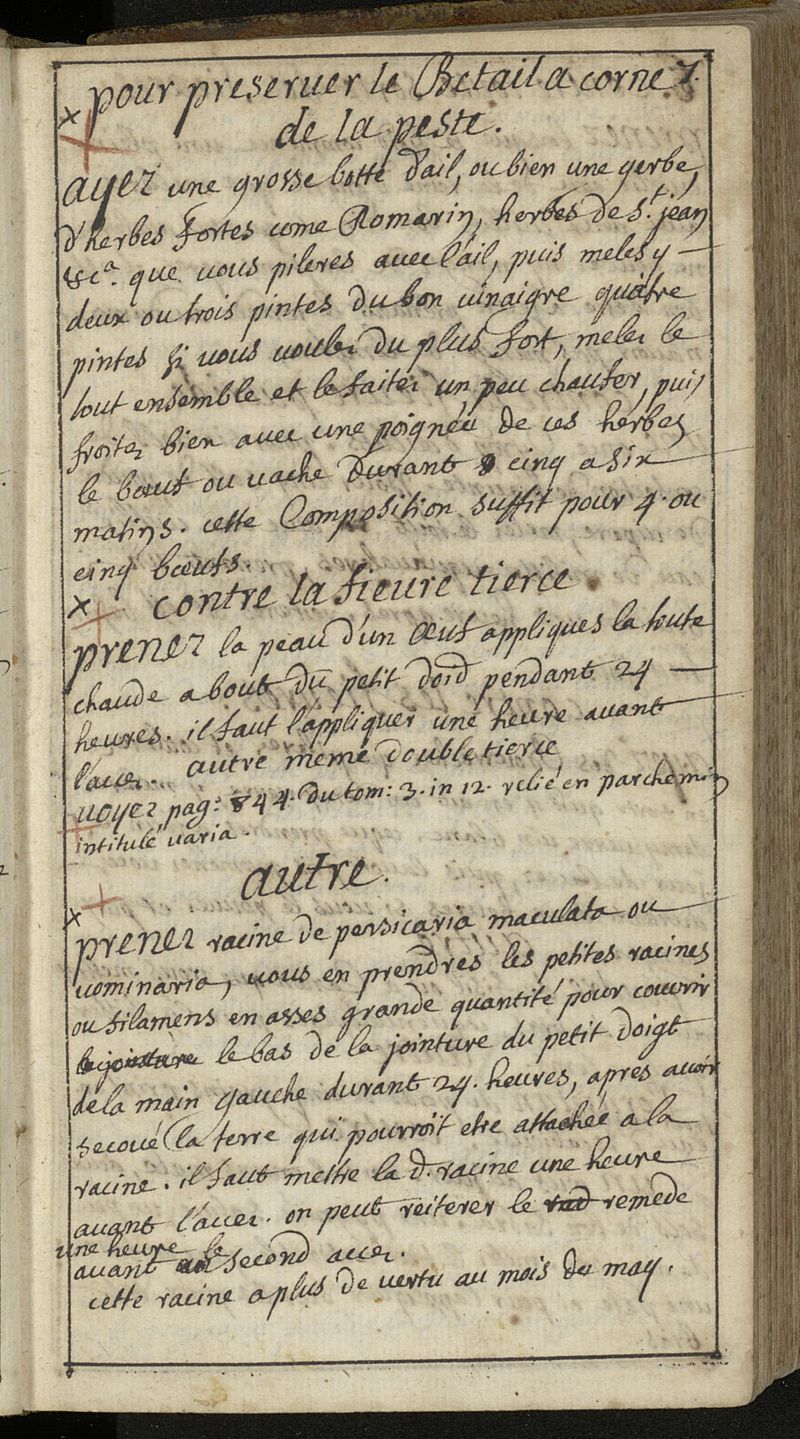 pour preseruer le Betail a corne 7.
de la peste.
ayez une grosse botte d'ail, ou bien une gerbe,
d'herbes fortes come Romarin, herbes de s.t jean
&c.a que vous pileres avec l'ail, puis meles y
deux ou trois pintes du bon vinaigre quatre
pintes si vous voulez du plus fort, melez le
tout ensemble et le faitez un peu chaufer, puis
froitez bien avec une poignéé de ces herbes
le bœuf ou vache durant cinq a six
matins. cette Composition suffit pour 4. ou
cinq bœufs.
contre la fieure tierce.
prenez la peau d'un Oeuf appliques la toute
chaude a bout du petit doid pendant 24
heures. il faut l'appliquer une heure avant
l'accez. autre meme double tierce
voyez pag: 844. du tom: 3. in 12. relié en parchemin
intitulé varia.
autre.
prenez racine de persicaria maculata ou
vominaria, vous en prendres les petites racines
ou filamens en asses grande quantité pour couvrir
le bas de la jointure du petit doigt
de la main gauche durant 24. heures, apres avoir
secoué la terre qui pourroit etre attachée a la
racine. il faut mettre la d. racine une heure
avant l'accez. on peut reiterer le remede
une heure le
avant second accez.
cette racine a plus de vertu au mois de may.